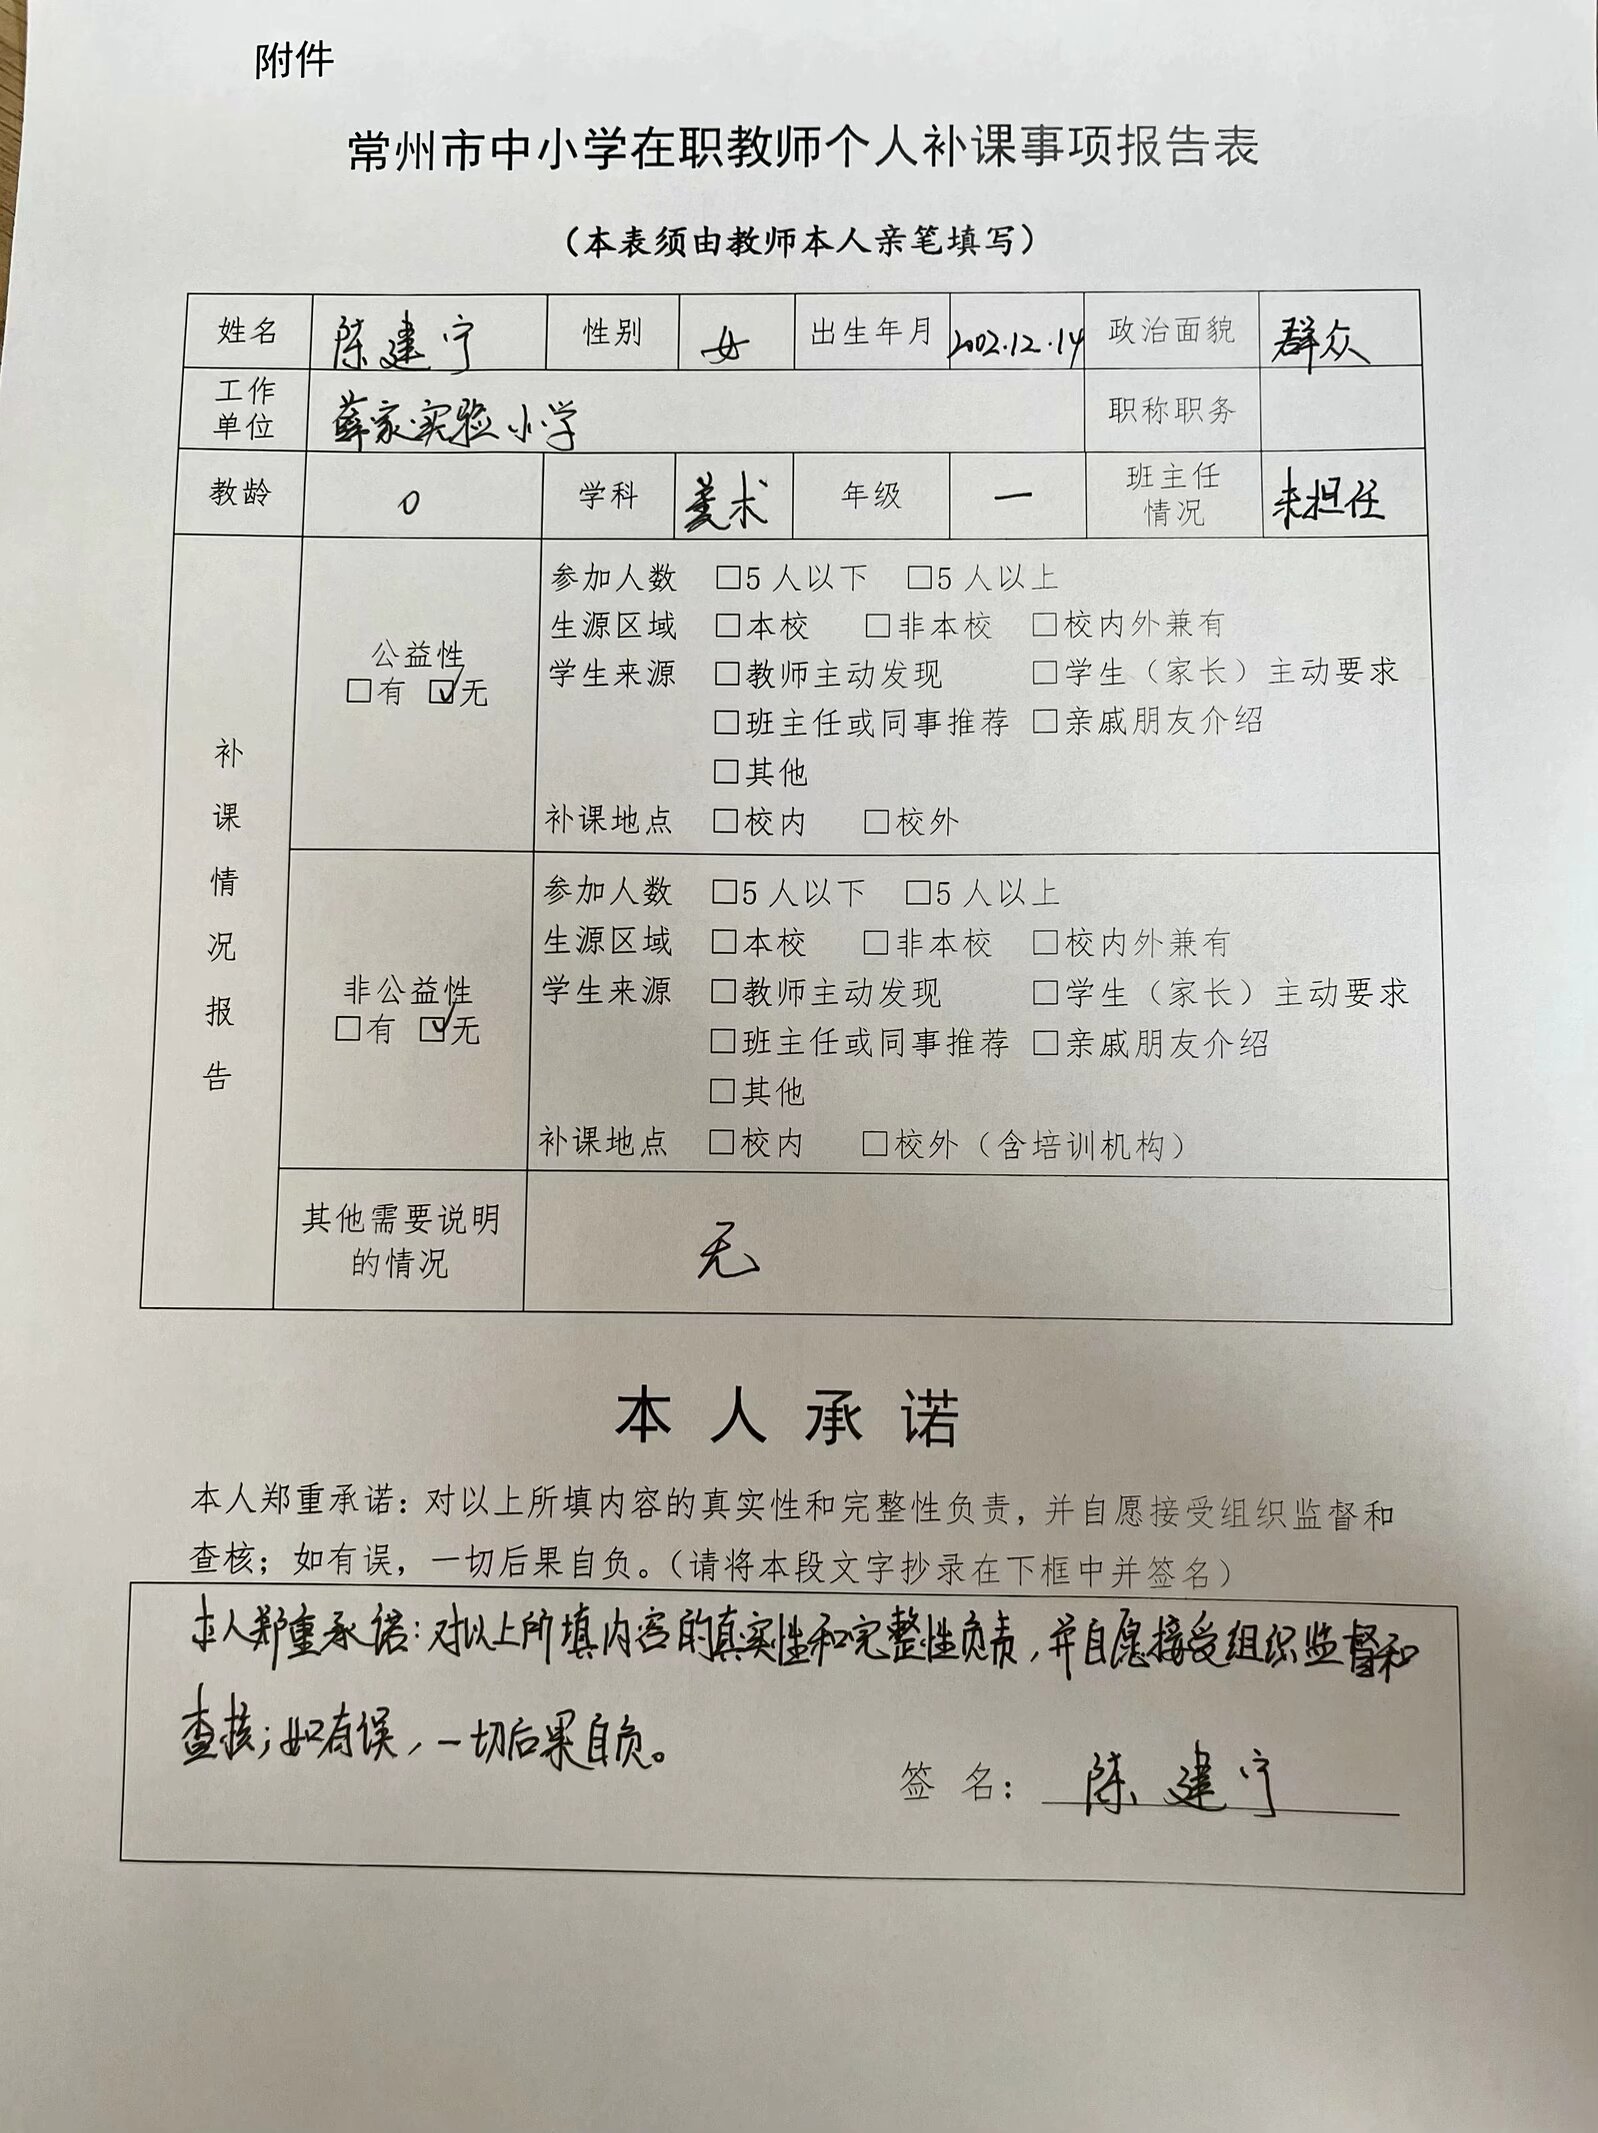 附件
常州市中小学在职教师个人补课事项报告表
（本表须由教师本人亲笔填写）
姓名 陈建宁 性别 女 出生年月 2002.12.14 政治面貌 群众
工作单位 薛家实验小学 职称职务
教龄 0 学科 美术 年级 一 班主任情况 未担任
补课情况报告
公益性
□有 ☑无
参加人数 □5人以下 □5人以上
生源区域 □本校 □非本校 □校内外兼有
学生来源 □教师主动发现 □学生（家长）主动要求
□班主任或同事推荐 □亲戚朋友介绍
□其他
补课地点 □校内 □校外
非公益性
□有 ☑无
参加人数 □5人以下 □5人以上
生源区域 □本校 □非本校 □校内外兼有
学生来源 □教师主动发现 □学生（家长）主动要求
□班主任或同事推荐 □亲戚朋友介绍
□其他
补课地点 □校内 □校外（含培训机构）
其他需要说明的情况 无
本人承诺
本人郑重承诺：对以上所填内容的真实性和完整性负责，并自愿接受组织监督和
查核；如有误，一切后果自负。（请将本段文字抄录在下框中并签名）
本人郑重承诺：对以上所填内容的真实性和完整性负责，并自愿接受组织监督和
查核；如有误，一切后果自负。
签名：陈建宁